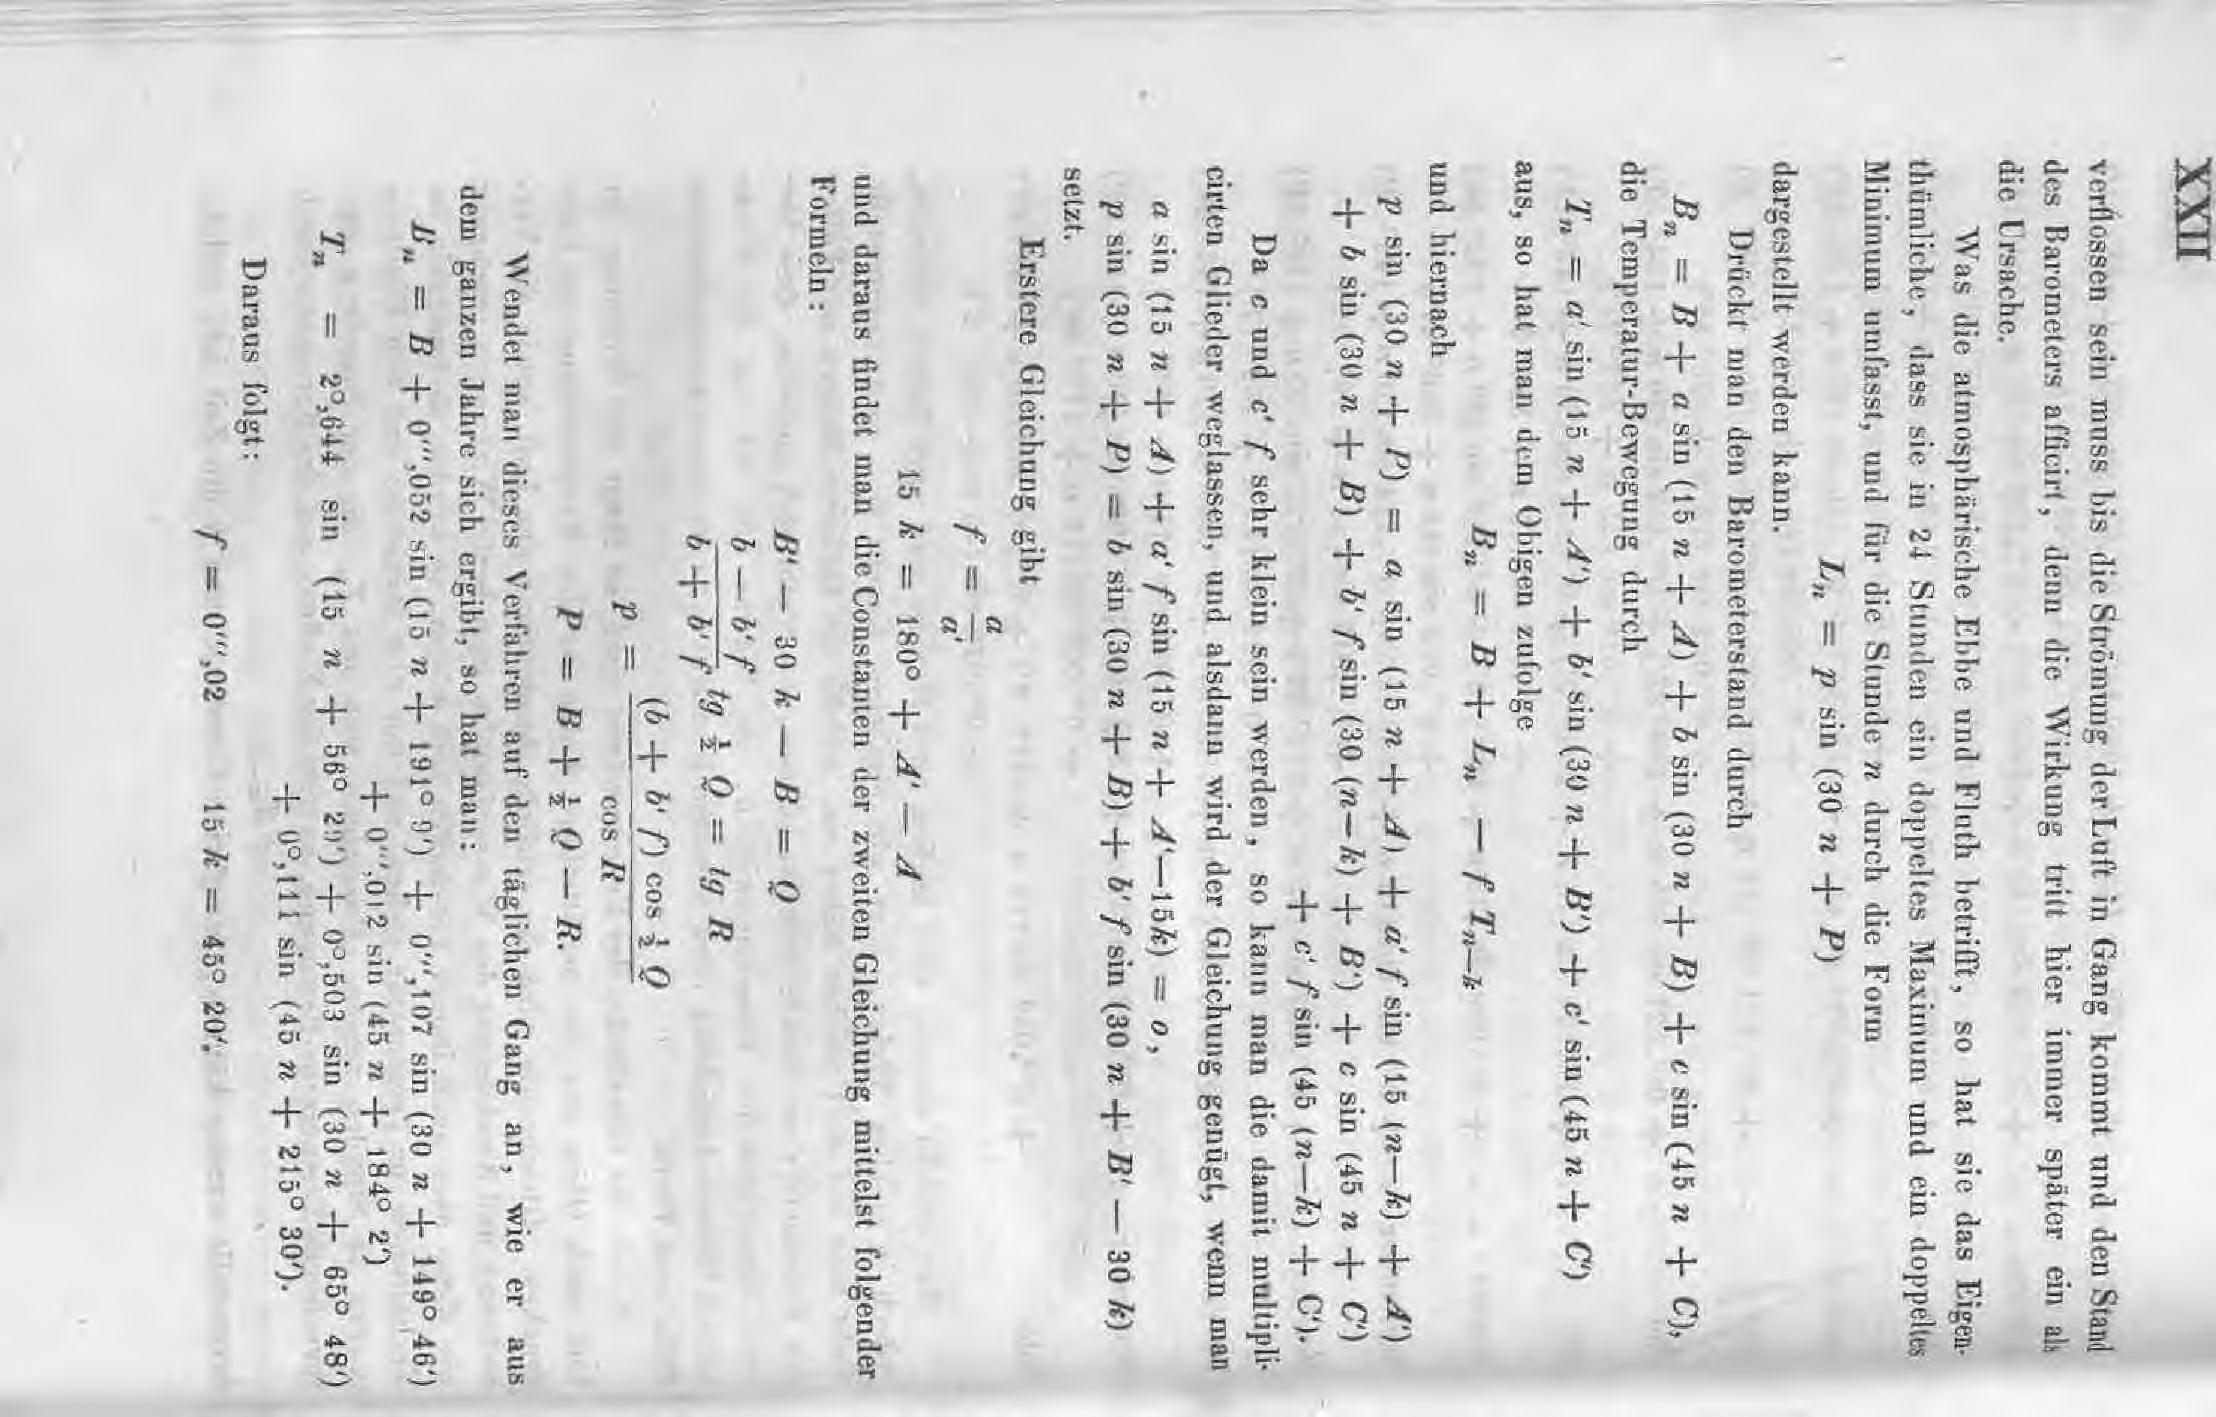 XXII
verflossen sein muss bis die Strömung der Luft in Gang kommt und den Stand
des Barometers afficirt, denn die Wirkung tritt hier immer später ein als
die Ursache.
Was die atmosphärische Ebbe und Fluth betrifft, so hat sie das Eigen-
thümliche, dass sie in 24 Stunden ein doppeltes Maximum und ein doppeltes
Minimum umfasst, und für die Stunde n durch die Form
Lₙ = p sin (30 n + P)
dargestellt werden kann.
Drückt man den Barometerstand durch
Bₙ = B + a sin (15 n + A) + b sin (30 n + B) + c sin (45 n + C),
die Temperatur-Bewegung durch
Tₙ = a' sin (15 n + A') + b' sin (30 n + B') + c' sin (45 n + C')
aus, so hat man dem Obigen zufolge
Bₙ = B + Lₙ — f Tₙ₋ₖ
und hiernach
p sin (30 n + P) = a sin (15 n + A) + a' f sin (15 (n—k) + A')
+ b sin (30 n + B) + b' f sin (30 (n—k) + B') + c sin (45 n + C')
+ c' f sin (45 (n—k) + C').
Da c und c' f sehr klein sein werden, so kann man die damit multipli-
cirten Glieder weglassen, und alsdann wird der Gleichung genügt, wenn man
a sin (15 n + A) + a' f sin (15 n + A'—15k) = o,
p sin (30 n + P) = b sin (30 n + B) + b' f sin (30 n + B' — 30 k)
setzt.
Erstere Gleichung gibt
f = a/a'
15 k = 180° + A' — A
und daraus findet man die Constanten der zweiten Gleichung mittelst folgender
Formeln:
B' — 30 k — B = Q
(b — b' f)/(b + b' f) tg ½ Q = tg R
p = (b + b' f) cos ½ Q / cos R
P = B + ½ Q — R.
Wendet man dieses Verfahren auf den täglichen Gang an, wie er aus
dem ganzen Jahre sich ergibt, so hat man:
Bₙ = B + 0‴,052 sin (15 n + 191° 9') + 0‴,107 sin (30 n + 149° 46')
+ 0‴,012 sin (45 n + 184° 2')
Tₙ = 2°,644 sin (15 n + 56° 29') + 0°,503 sin (30 n + 65° 48')
+ 0°,111 sin (45 n + 215° 30').
Daraus folgt:
f = 0‴,02 15 k = 45° 20';